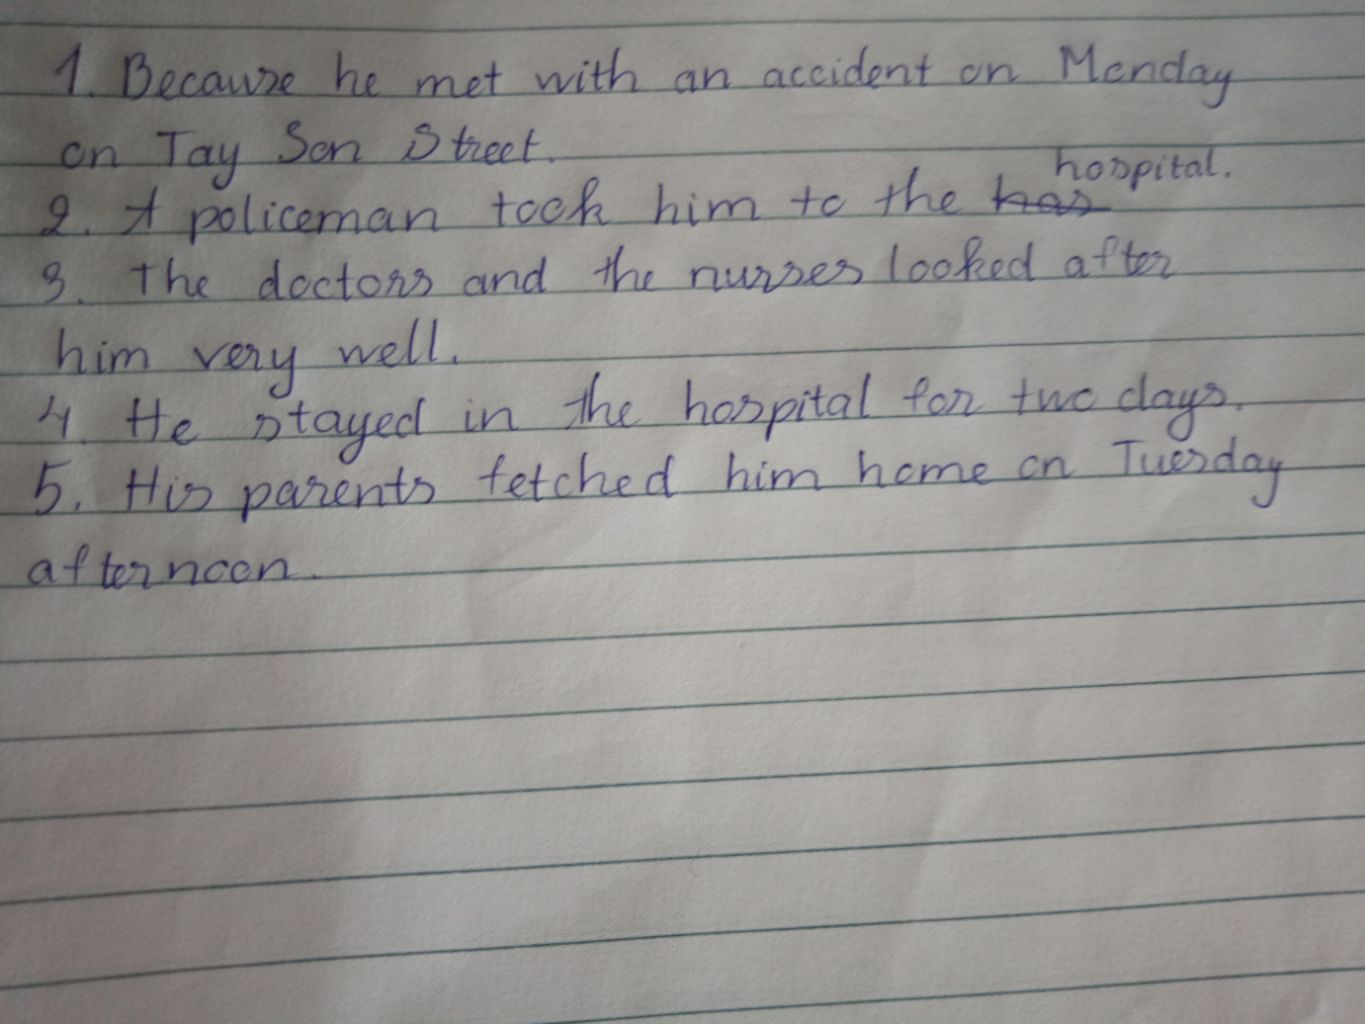 1. Because he met with an accident on Monday
on Tay Son Street.
2. A policeman took him to the has hospital.
3. The doctors and the nurses looked after
him very well.
4. He stayed in the hospital for two days.
5. His parents fetched him home on Tuesday
afternoon.